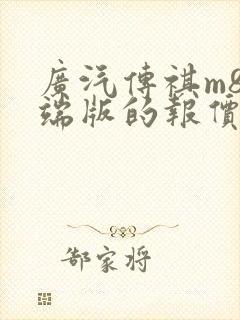 廣汽傳祺m8
端版的報價
郜家将